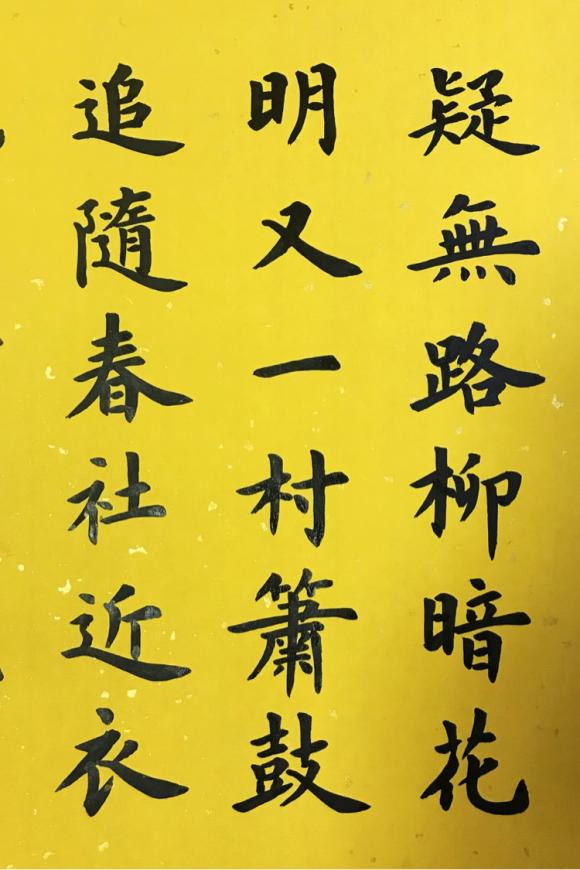 疑無路柳暗花
明又一村簫鼓
追隨春社近衣